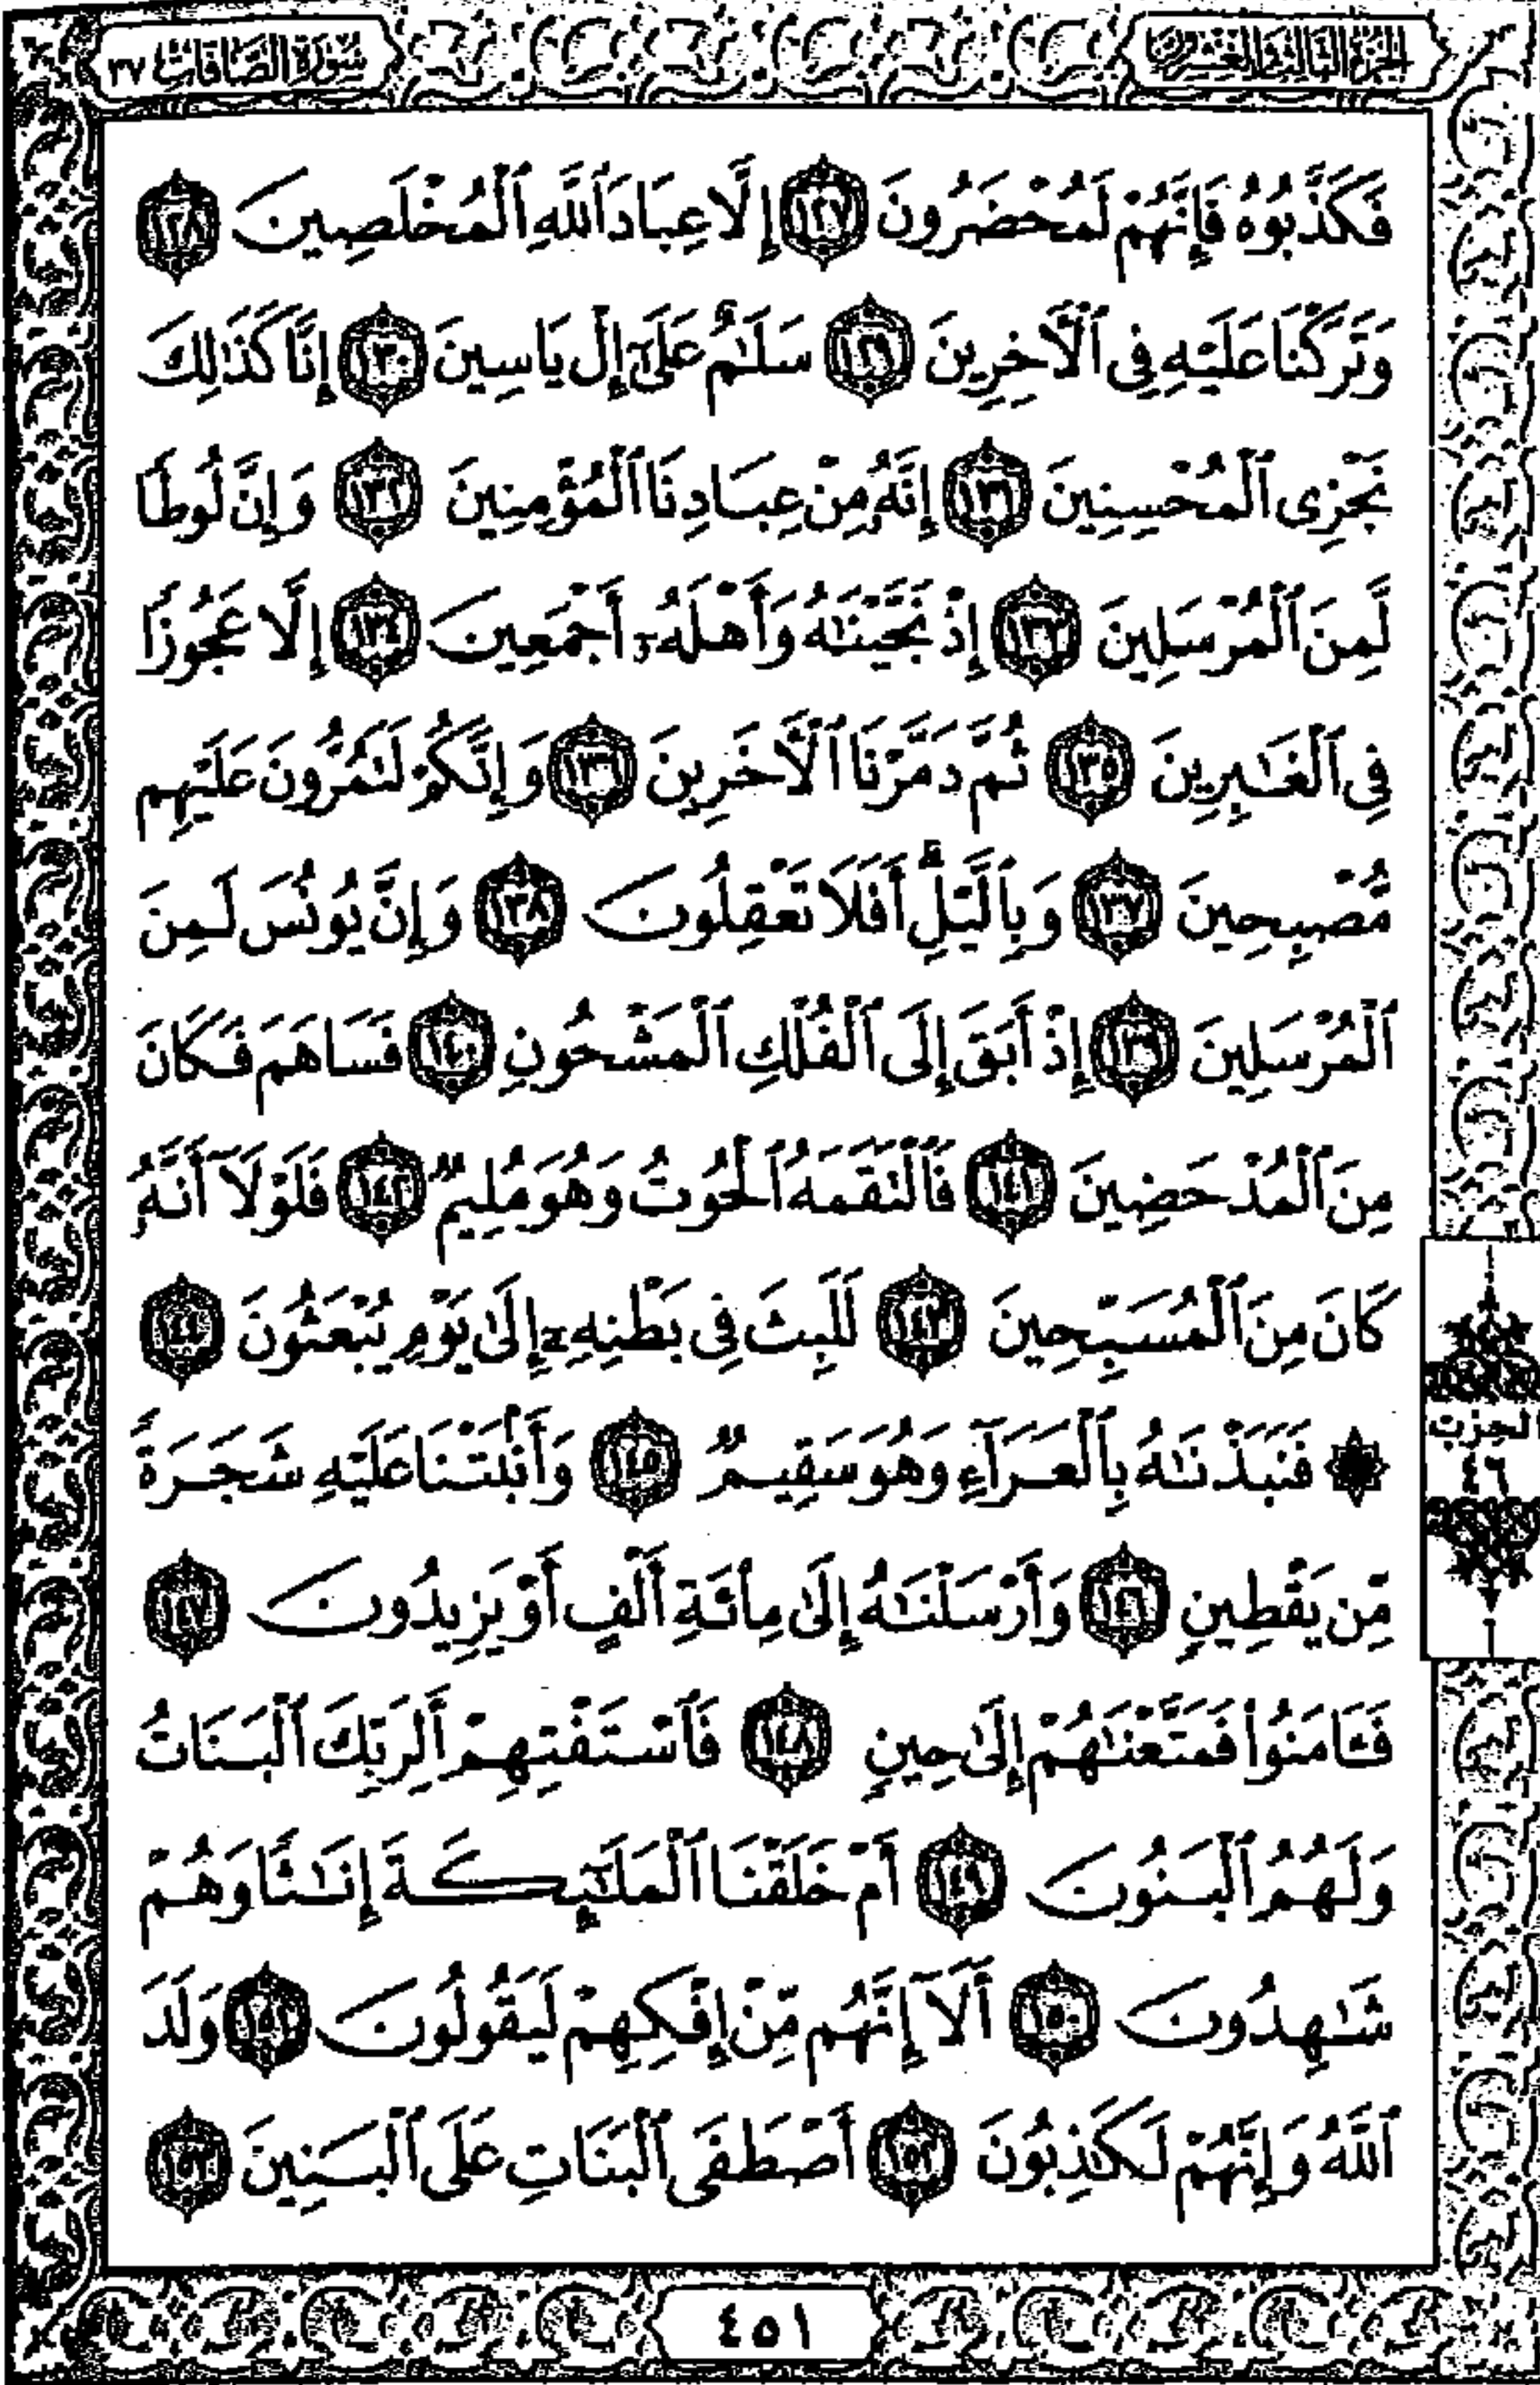 الجزء الثالث والعشرون
سورة الصافات ٣٧
فَكَذَّبُوهُ فَإِنَّهُمْ لَمُحْضَرُونَ ١٢٧ إِلَّا عِبَادَ ٱللَّهِ ٱلْمُخْلَصِينَ ١٢٨
وَتَرَكْنَا عَلَيْهِ فِى ٱلْأَخِرِينَ ١٢٩ سَلَـٰمٌ عَلَىٰٓ إِلْ يَاسِينَ ١٣٠ إِنَّا كَذَٰلِكَ
نَجْزِى ٱلْمُحْسِنِينَ ١٣١ إِنَّهُۥ مِنْ عِبَادِنَا ٱلْمُؤْمِنِينَ ١٣٢ وَإِنَّ لُوطًا
لَّمِنَ ٱلْمُرْسَلِينَ ١٣٣ إِذْ نَجَّيْنَـٰهُ وَأَهْلَهُۥٓ أَجْمَعِينَ ١٣٤ إِلَّا عَجُوزًا
فِى ٱلْغَـٰبِرِينَ ١٣٥ ثُمَّ دَمَّرْنَا ٱلْأَخَرِينَ ١٣٦ وَإِنَّكُمْ لَتَمُرُّونَ عَلَيْهِم
مُّصْبِحِينَ ١٣٧ وَبِٱلَّيْلِ ۗ أَفَلَا تَعْقِلُونَ ١٣٨ وَإِنَّ يُونُسَ لَمِنَ
ٱلْمُرْسَلِينَ ١٣٩ إِذْ أَبَقَ إِلَى ٱلْفُلْكِ ٱلْمَشْحُونِ ١٤٠ فَسَاهَمَ فَكَانَ
مِنَ ٱلْمُدْحَضِينَ ١٤١ فَٱلْتَقَمَهُ ٱلْحُوتُ وَهُوَ مُلِيمٌ ١٤٢ فَلَوْلَآ أَنَّهُۥ
كَانَ مِنَ ٱلْمُسَبِّحِينَ ١٤٣ لَلَبِثَ فِى بَطْنِهِۦٓ إِلَىٰ يَوْمِ يُبْعَثُونَ ١٤٤
۞ فَنَبَذْنَـٰهُ بِٱلْعَرَآءِ وَهُوَ سَقِيمٌ ١٤٥ وَأَنۢبَتْنَا عَلَيْهِ شَجَرَةً
مِّن يَقْطِينٍ ١٤٦ وَأَرْسَلْنَـٰهُ إِلَىٰ مِا۟ئَةِ أَلْفٍ أَوْ يَزِيدُونَ ١٤٧
فَـَٔامَنُوا۟ فَمَتَّعْنَـٰهُمْ إِلَىٰ حِينٍ ١٤٨ فَٱسْتَفْتِهِمْ أَلِرَبِّكَ ٱلْبَنَاتُ
وَلَهُمُ ٱلْبَنُونَ ١٤٩ أَمْ خَلَقْنَا ٱلْمَلَـٰٓئِكَةَ إِنَـٰثًا وَهُمْ
شَـٰهِدُونَ ١٥٠ أَلَآ إِنَّهُم مِّنْ إِفْكِهِمْ لَيَقُولُونَ ١٥١ وَلَدَ
ٱللَّهُ وَإِنَّهُمْ لَكَـٰذِبُونَ ١٥٢ أَصْطَفَى ٱلْبَنَاتِ عَلَى ٱلْبَنِينَ ١٥٣
الحزب
٤٦
٤٥١